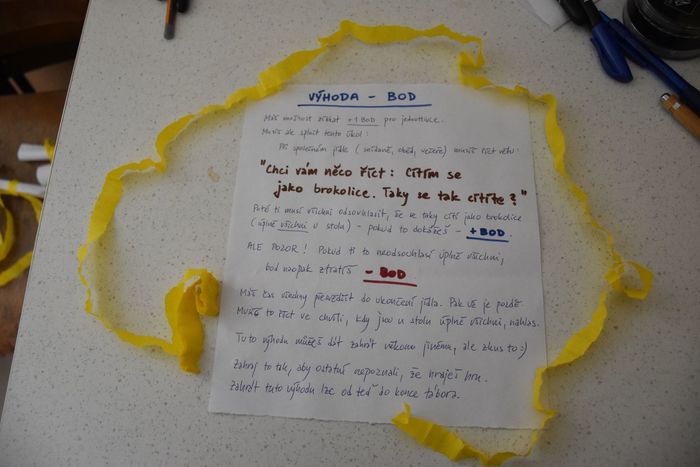 VÝHODA – BOD
Máš možnost získat +1 BOD pro jednotlivce.
Musíš ale splnit tento úkol:
Při společném jídle (snídaně, oběd, večeře) musíš říct větu:
"Chci vám něco říct: Cítím se
jako brokolice. Taky se tak cítíte?"
Poté ti musí všichni odsouhlasit, že se taky cítí jako brokolice
(úplně všichni u stolu) – pokud to dokážeš – +BOD.
ALE POZOR! Pokud ti to neodsouhlasí úplně všichni,
bod naopak ztratíš – BOD
Máš čas všechny přesvědčit do ukončení jídla. Pak už je pozdě.
Musíš to říct ve chvíli, kdy jsou u stolu úplně všichni, nahlas.
Tuto výhodu můžeš dát zahrát někomu jinému, ale zkus to :)
Zahraj to tak, aby ostatní nepoznali, že hraješ hru.
Zahrát tuto výhodu lze od teď do konce tábora.